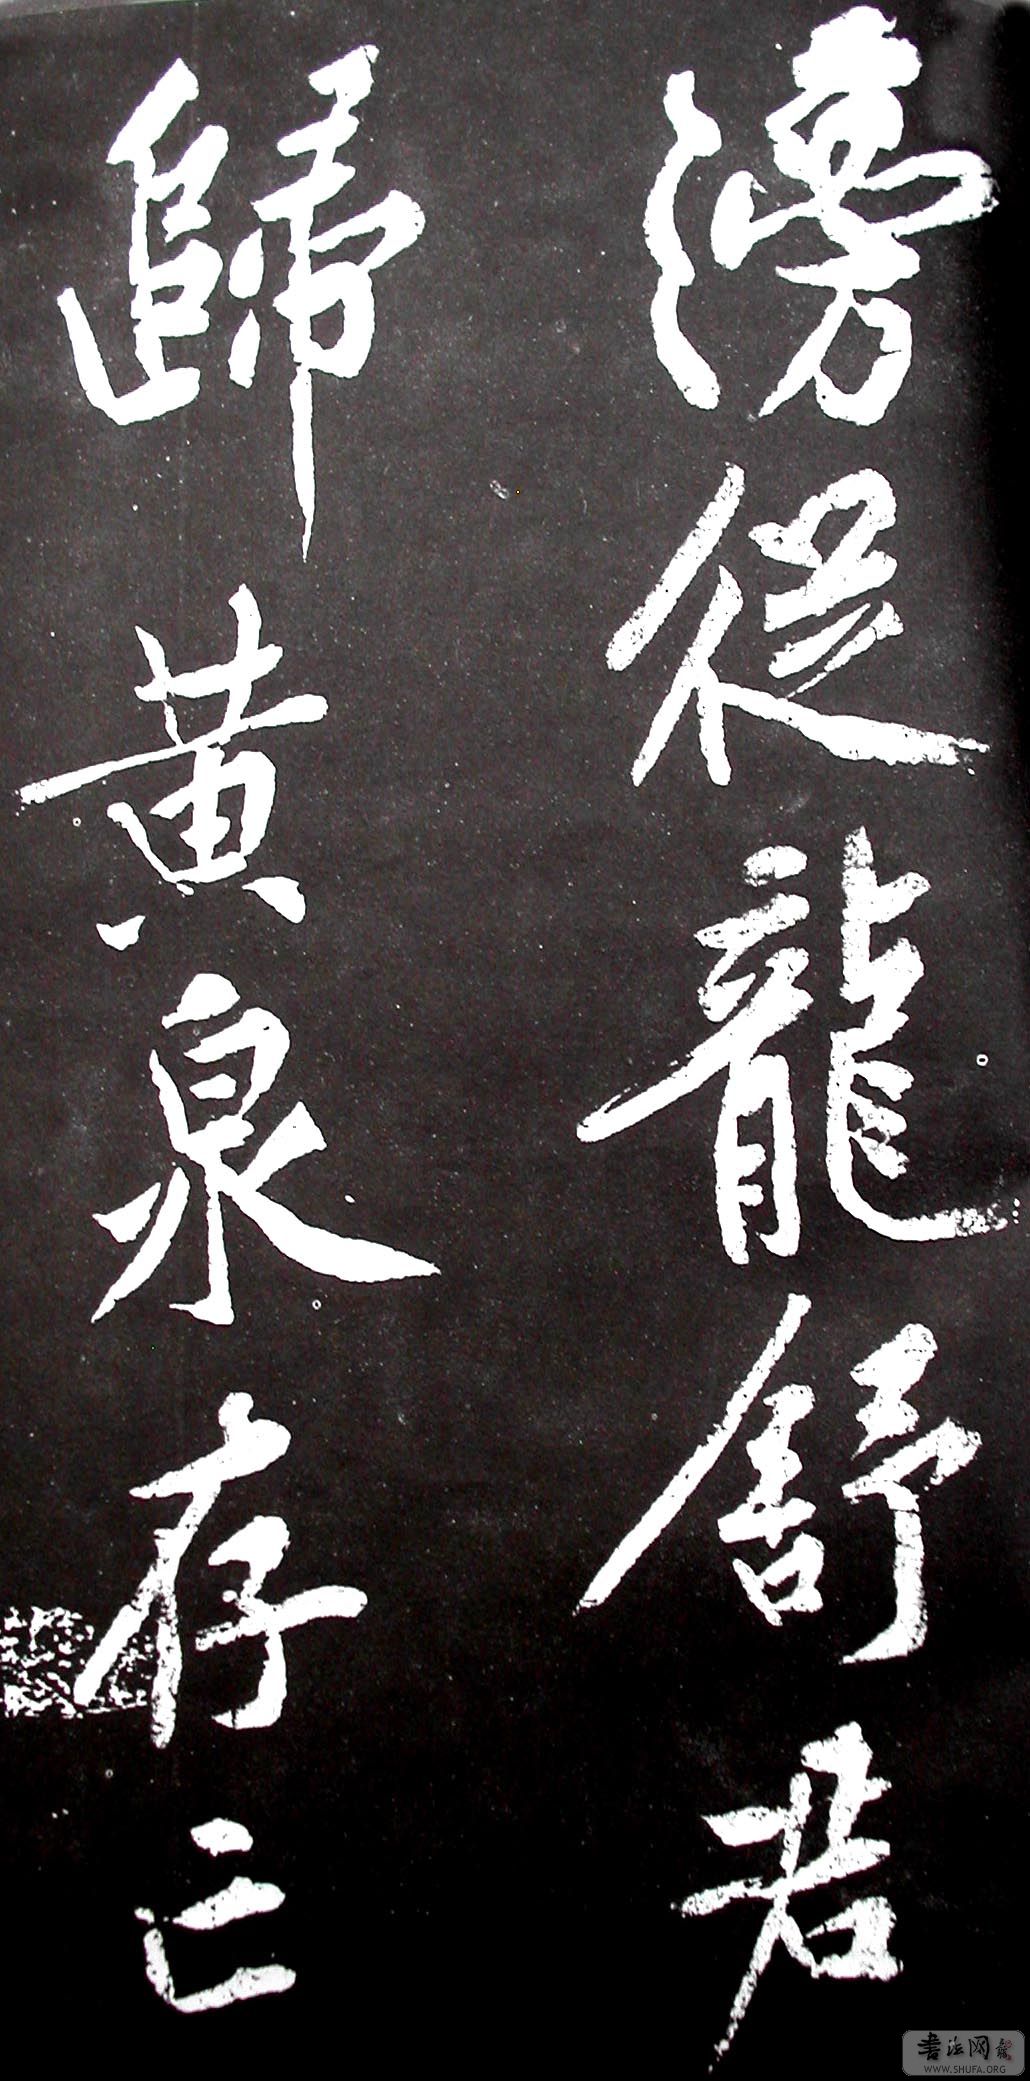 滂從龍舒君
歸黃泉存亡
書法网
WWW.SHUFA.ORG